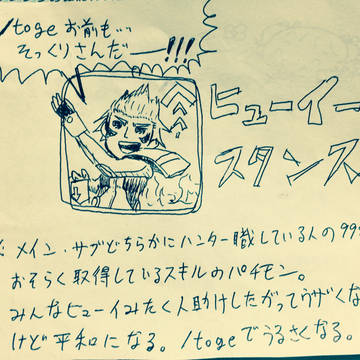 /toge お前も…
そっくりさんだー!!!
ヒューイー
スタンス
※ メイン・サブどちらかにハンター職している人の99
おそらく取得しているスキルのパチモン。
みんなヒューイみたく人助けしたがってウザくな
けど平和になる。/togeでうるさくなる。